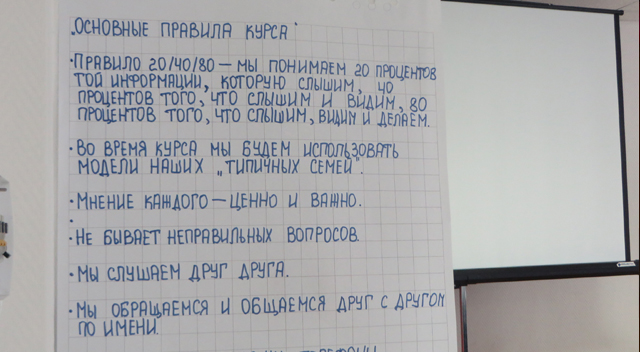 „ОСНОВНЫЕ ПРАВИЛА КУРСА"
• ПРАВИЛО 20/40/80 — МЫ ПОНИМАЕМ 20 ПРОЦЕНТОВ
ТОЙ ИНФОРМАЦИИ, КОТОРУЮ СЛЫШИМ, 40
ПРОЦЕНТОВ ТОГО, ЧТО СЛЫШИМ И ВИДИМ, 80
ПРОЦЕНТОВ ТОГО, ЧТО СЛЫШИМ, ВИДИМ И ДЕЛАЕМ.
• ВО ВРЕМЯ КУРСА МЫ БУДЕМ ИСПОЛЬЗОВАТЬ
МОДЕЛИ НАШИХ „ТИПИЧНЫХ СЕМЕЙ".
• МНЕНИЕ КАЖДОГО — ЦЕННО И ВАЖНО.
• НЕ БЫВАЕТ НЕПРАВИЛЬНЫХ ВОПРОСОВ.
• МЫ СЛУШАЕМ ДРУГ ДРУГА.
• МЫ ОБРАЩАЕМСЯ И ОБЩАЕМСЯ ДРУГ С ДРУГОМ
ПО ИМЕНИ.